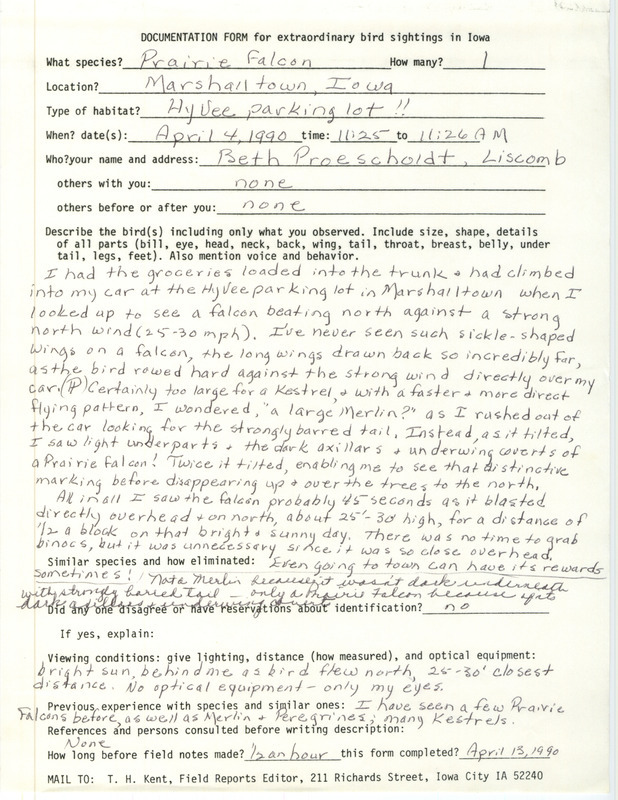 DOCUMENTATION FORM for extraordinary bird sightings in Iowa
What species? Prairie Falcon How many? 1
Location? Marshalltown, Iowa
Type of habitat? HyVee parking lot !!
When? date(s): April 4, 1990 time: 11:25 to 11:26 AM
Who?your name and address: Beth Proescholdt, Liscomb
others with you: none
others before or after you: none
Describe the bird(s) including only what you observed. Include size, shape, details
of all parts (bill, eye, head, neck, back, wing, tail, throat, breast, belly, under
tail, legs, feet). Also mention voice and behavior.
I had the groceries loaded into the trunk + had climbed
into my car at the HyVee parking lot in Marshalltown when I
looked up to see a falcon beating north against a strong
north wind (25-30 mph). I've never seen such sickle-shaped
wings on a falcon, the long wings drawn back so incredibly far,
as the bird rowed hard against the strong wind directly over my
car. (P) Certainly too large for a Kestrel, + with a faster + more direct
flying pattern, I wondered, "a large Merlin?" as I rushed out of
the car looking for the strongly barred tail. Instead, as it tilted,
I saw light underparts + the dark axillars + underwing coverts of
a Prairie Falcon! Twice it tilted, enabling me to see that distinctive
marking before disappearing up + over the trees to the north.
All in all I saw the falcon probably 45 seconds as it blasted
directly overhead + on north, about 25'-30' high, for a distance of
1/2 a block on that bright + sunny day. There was no time to grab
binocs, but it was unnecessary since it was so close overhead.
Similar species and how eliminated: Even going to town can have its rewards
sometimes!! Not a Merlin because it wasn't dark underneath
with strongly barred tail - only a Prairie Falcon because of its
dark axillars + underwing coverts
Did any one disagree or have reservations about identification? no
If yes, explain:
Viewing conditions: give lighting, distance (how measured), and optical equipment:
bright sun, behind me as bird flew north, 25-30' closest
distance. No optical equipment - only my eyes.
Previous experience with species and similar ones: I have seen a few Prairie
Falcons before, as well as Merlin + Peregrines; many Kestrels.
References and persons consulted before writing description:
None
How long before field notes made? 1/2 an hour this form completed? April 13, 1990
MAIL TO: T. H. Kent, Field Reports Editor, 211 Richards Street, Iowa City IA 52240